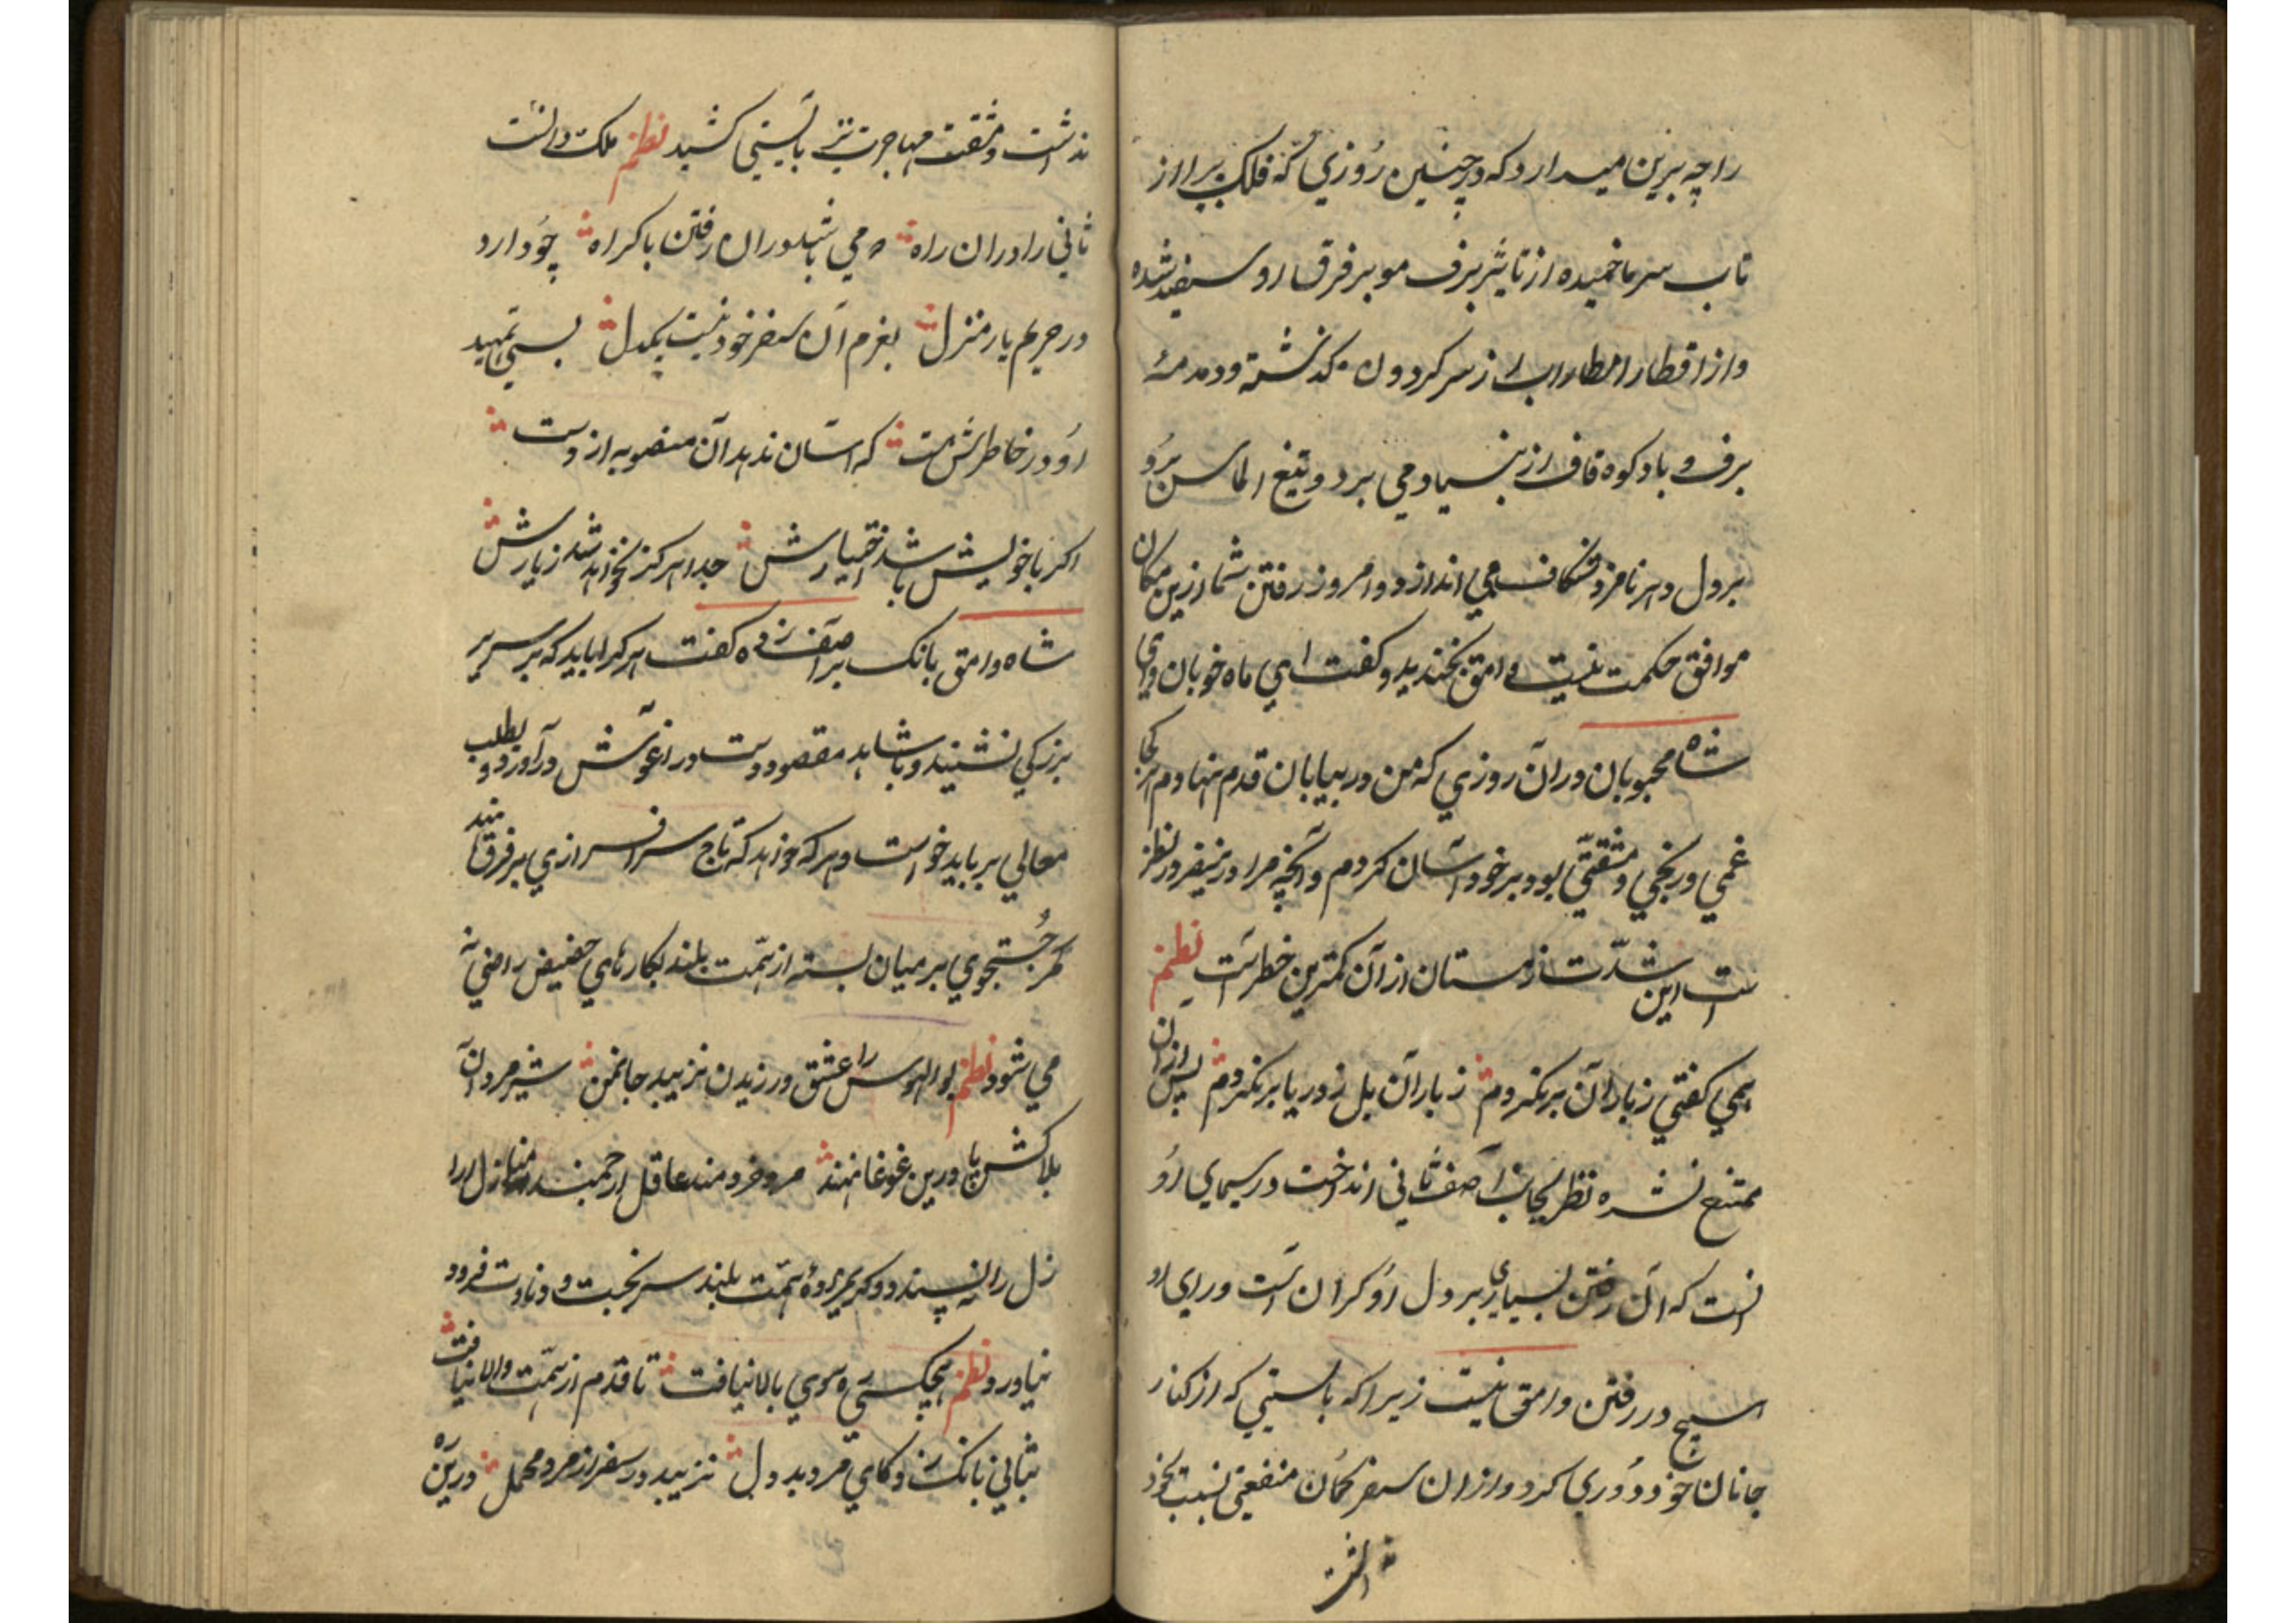 را چه برین میدارد که در چنین روزی که فلک پیر از
تاب سرما خمیده از تاثیر برف مو بر فرق او سفید شده
و از اقطار امطار اب از سر کردون کذشته و دمدمهٔ
برف و باد کوه قاف از بنیاد می برد و تیغ الماس برد
بر دل دهر نامرد شکاف می اندازد و امروز رفتن شما ازین مکان
موافق حکمت نیست وامق بخندید و کفت ای ماه خوبان وای
شاه محبوبان دران روزی که من در بیابان قدم نهادم هرکجا
غمی و رنجی و مشقتی بود بر خود آسان کردم و آنچه مرا درین سفر در نظر
است این شدت زمستان از آن کمترین خطر است نظم
همی کفتی ز باران بر نکردم ز باران بل ز دریا بر نکردم پس ازان
ممتنع نشده نظر بجانب آصف ثانی انداخت در سیمای او
انست که آن رفتن بسیاری بر دل او کران است و رای او
هیچ در رفتن وامق نیست زیرا که بایستی که از کنار
جانان خود دوری کرد و ازان سفر کمان منفعتی نسبت بخود
نداشت
نداشت و مشقت مهاجرت نیز بایستی کشید نظم ملک دانست
ثانی را دران راه نمی باشد دران رفتن باکراه چو دارد
در حریم یار منزل بعزم آن سفر خود نیست یکدل بسی تمهید
او در خاطرش هست که اسان ندهد آن منصوبه از دست
اکر با خویش باشد اختیارش جدا هرکز نخواهد شد ز یارش
شاه وامق بانک بر آصف زده کفت هر کرا باید که بر سریر
بزرکی نشیند و با شاهد مقصود دست در اغوش درآورد و بطلب
معالی برباید خواست و هر که خواهد که تاج سرافرازی بر فرق نهد
کمر جستجوی بر میان بسته از همت بلند بکارهای حضیض راضی نه
می شود نظم بوالهوس را عشق ورزیدن نزیبد جانمن شیر مردان
بلاکش پا درین غوغا نهند مرد خردمند عاقل ارجمند منازل را
زل را نپسندد و کریم زادهٔ همت بلند سر بخست و دنائت فرود
نیاورد نظم هیچکس ره سوی بالا نیافت تا قدم از همت والا نیافت
بثانی بانک زد کای مرد بددل نزیبد در سفر از مرد محمل درین ره